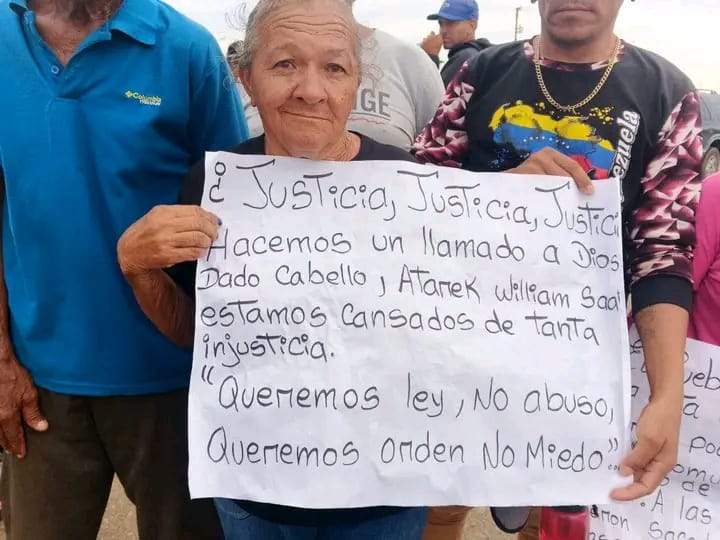 Columbia
GE
Venezuela
¿ Justicia, Justicia, Justici
Hacemos un llamado a Dios
Dado Cabello, A tarek william Saa
estamos cansados de tanta
injusticia.
"Queremos ley, No abuso,
Queremos orden No Miedo."
A las